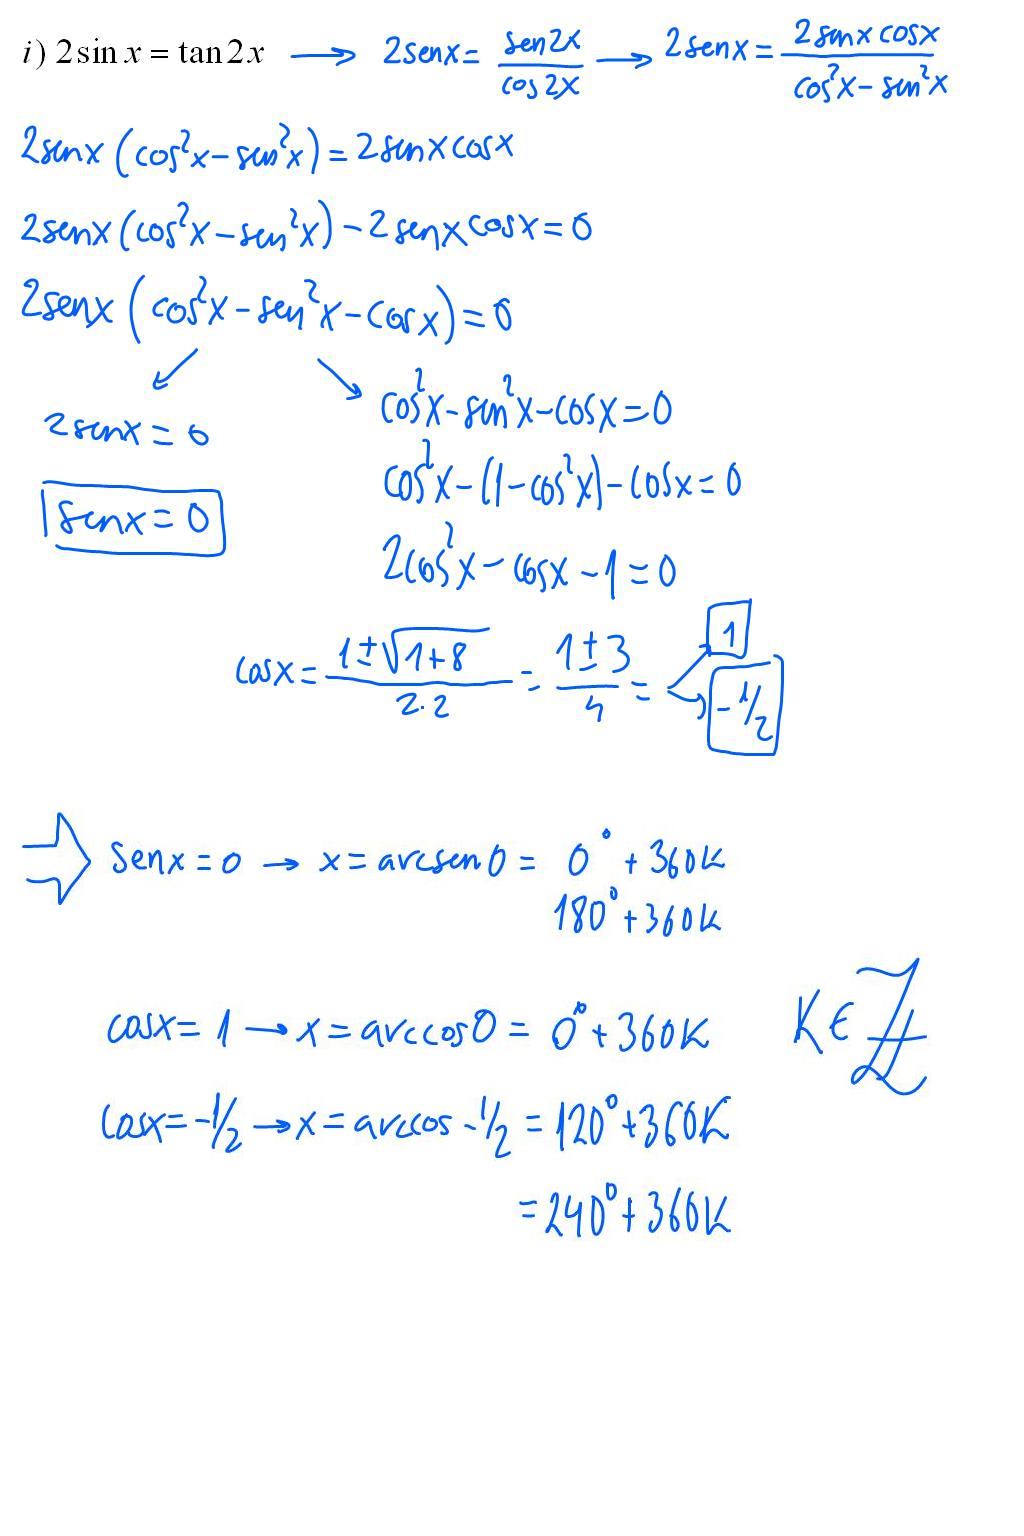 i) 2 sin x = tan 2x → 2senx = sen2x/cos2x → 2senx = 2senxcosx/cos²x – sen²x
2senx (cos²x – sen²x) = 2senxcosx
2senx (cos²x – sen²x) – 2senxcosx = 0
2senx (cos²x – sen²x – cosx) = 0
2senx = 0
senx = 0
cos²x – sen²x – cosx = 0
cos²x – (1 – cos²x) – cosx = 0
2cos²x – cosx – 1 = 0
cosx = 1±√1+8/2·2 = 1±3/4 = 1
-1/2
⇒ senx = 0 → x = arcsen0 = 0° + 360K
180° + 360K
cosx = 1 → x = arccos0 = 0° + 360K
K ∈ ℤ
cosx = -1/2 → x = arccos -1/2 = 120° + 360K
= 240° + 360K